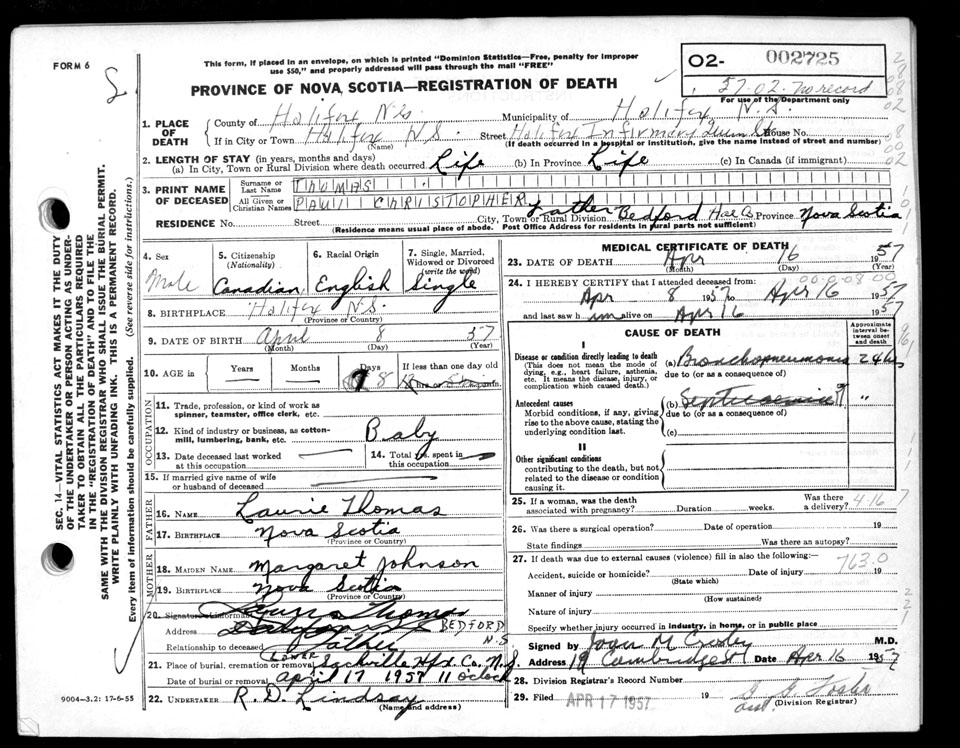 FORM 6
This form, if placed in an envelope, on which is printed "Dominion Statistics—Free, penalty for improper
use $50," and properly addressed will pass through the mail "FREE"
PROVINCE OF NOVA SCOTIA—REGISTRATION OF DEATH
O2- 002725
57-02- no record
For use of the Department only
1. PLACE OF DEATH
County of Halifax N.S. Municipality of Halifax N.S.
If in City or Town Halifax N.S. Street Halifax Infirmary Queen St. House No.
(Name) (If death occurred in a hospital or institution, give the name instead of street and number)
2. LENGTH OF STAY (in years, months and days)
(a) In City, Town or Rural Division where death occurred Life (b) In Province Life (c) In Canada (if immigrant)
3. PRINT NAME OF DECEASED
Surname or Last Name THOMAS
All Given or Christian Names PAUL CHRISTOPHER
RESIDENCE No. Street City, Town or Rural Division Father Bedford Hfx Co Province Nova Scotia
(Residence means usual place of abode. Post Office Address for residents in rural parts not sufficient)
4. Sex Male
5. Citizenship (Nationality) Canadian
6. Racial Origin English
7. Single, Married, Widowed or Divorced (write the word) Single
8. BIRTHPLACE Halifax N.S.
(Province or Country)
9. DATE OF BIRTH April 8 57
(Month) (Day) (Year)
10. AGE in Years Months Days 8 If less than one day old
hrs. or min.
OCCUPATION
11. Trade, profession, or kind of work as
spinner, teamster, office clerk, etc.
12. Kind of industry or business, as cotton-
mill, lumbering, bank, etc. Baby
13. Date deceased last worked
at this occupation
14. Total yrs. spent in
this occupation
15. If married give name of wife
or husband of deceased
FATHER
16. NAME Laurie Thomas
17. BIRTHPLACE Nova Scotia
(Province or Country)
MOTHER
18. MAIDEN NAME Margaret Johnson
19. BIRTHPLACE Nova Scotia
(Province or Country)
20. Signature of informant Laurie Thomas
Address BEDFORD N.S
Relationship to deceased Father
21. Place of burial, cremation or removal LOWER Sackville Hfx. Co. N.S.
Date of burial or removal April 17 1957 11 o'clock
22. UNDERTAKER R. D. Lindsay
(Name and address)
MEDICAL CERTIFICATE OF DEATH
23. DATE OF DEATH Apr 16 1957
(Month) (Day) (Year)
24. I HEREBY CERTIFY that I attended deceased from:
Apr 8 1957 to Apr 16 1957
and last saw him alive on Apr 16 1957
CAUSE OF DEATH
Approximate interval between onset and death
I
Disease or condition directly leading to death
(This does not mean the mode of
dying, e.g., heart failure, asthenia,
etc. It means the disease, injury, or
complication which caused death.)
(a) Bronchopneumonia 24 hrs
due to (or as a consequence of)
Antecedent causes
Morbid conditions, if any, giving
rise to the above cause, stating the
underlying condition last.
(b) Septicaemia ? "
due to (or as a consequence of)
(c)
II
Other significant conditions
contributing to the death, but not
related to the disease or condition
causing it.
25. If a woman, was the death
associated with pregnancy? Duration weeks. Was there
a delivery? 4-16 7
26. Was there a surgical operation? Date of operation 19
State findings Was there an autopsy?
27. If death was due to external causes (violence) fill in also the following:—
763.0
Accident, suicide or homicide? Date of injury 19
(State which)
Manner of injury
(How sustained)
Nature of injury
Specify whether injury occurred in industry, in home, or in public place
Signed by Joan M M.D.
Address 19 Cambridge St Date Apr 16 1957
28. Division Registrar's Record Number
29. Filed APR 17 1957 19
(Division Registrar)
9004—3.2: 17-6-55
SEC. 14—VITAL STATISTICS ACT MAKES IT THE DUTY
OF THE UNDERTAKER OR PERSON ACTING AS UNDER-
TAKER TO OBTAIN ALL THE PARTICULARS REQUIRED
IN THE "REGISTRATION OF DEATH" AND TO FILE THE
SAME WITH THE DIVISION REGISTRAR WHO SHALL ISSUE THE BURIAL PERMIT.
WRITE PLAINLY WITH UNFADING INK. THIS IS A PERMANENT RECORD.
Every item of information should be carefully supplied. (See reverse side for instructions.)